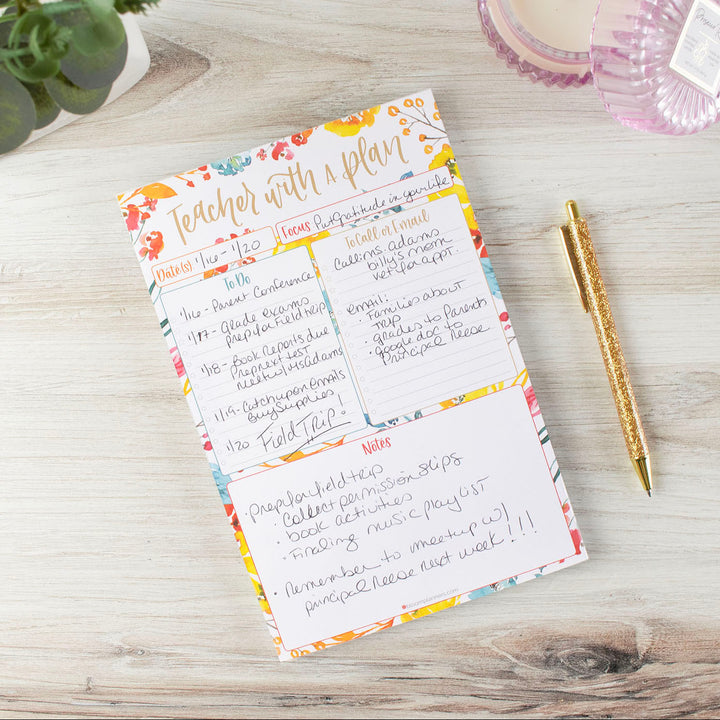 Teacher with a plan
Date(s) 1/16 - 1/20
Focus Put Gratitude in your life
To Do
1/16 - Parent Conference
1/17 - Grade exams
Prep for Field trip
1/18 - Book Reports due
Prep next test
Meet w/ Ms Adams
1/19 - Catch up on Emails
Buy supplies
1/20 Field TRIP!
To Call or Email
Call: ms. adams
billy's mom
vet for appt.
email:
• Families about
trip
• grades to Parents
• google doc to
Principal Reese
Notes
Prep for field trip
• Collect permission slips
• book activities
• Finding music playlist
• Remember to meet up w/
principal Reese next week!!!
bloomplanners.com